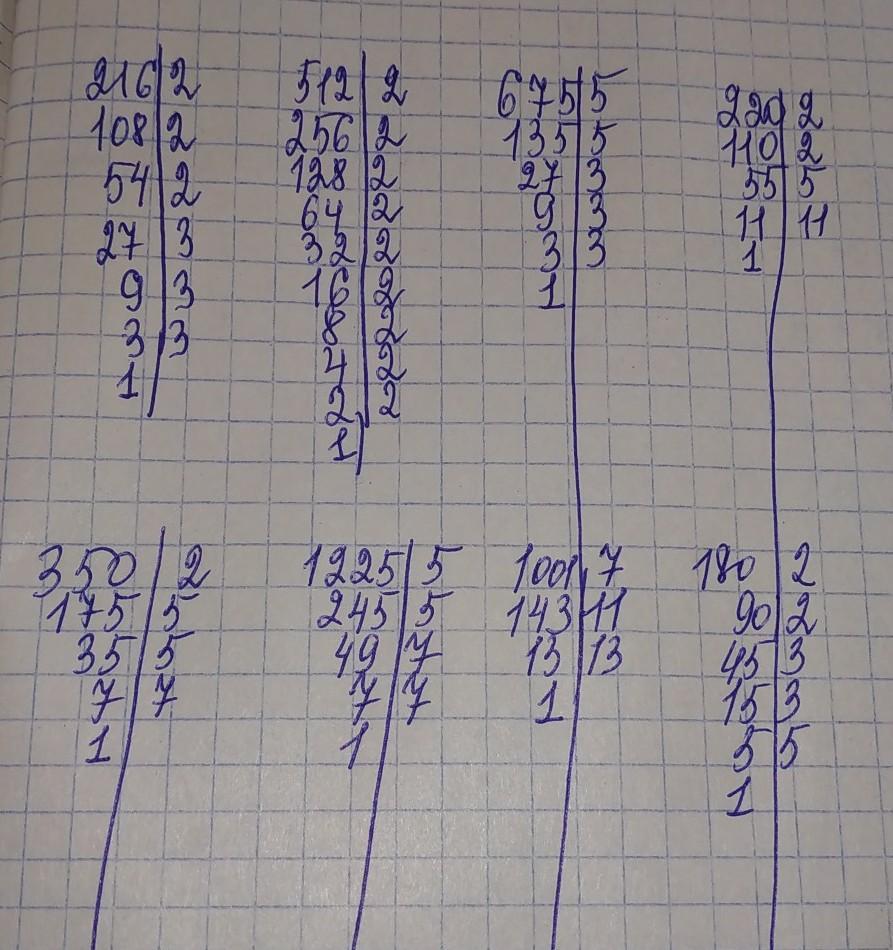 216|2
108|2
54|2
27|3
9|3
3|3
1|
512|2
256|2
128|2
64|2
32|2
16|2
8|2
4|2
2|2
1|
675|5
135|5
27|3
9|3
3|3
1|
220|2
110|2
55|5
11|11
1|
350|2
175|5
35|5
7|7
1|
1225|5
245|5
49|7
7|7
1|
1001|7
143|11
13|13
1|
180|2
90|2
45|3
15|3
5|5
1|